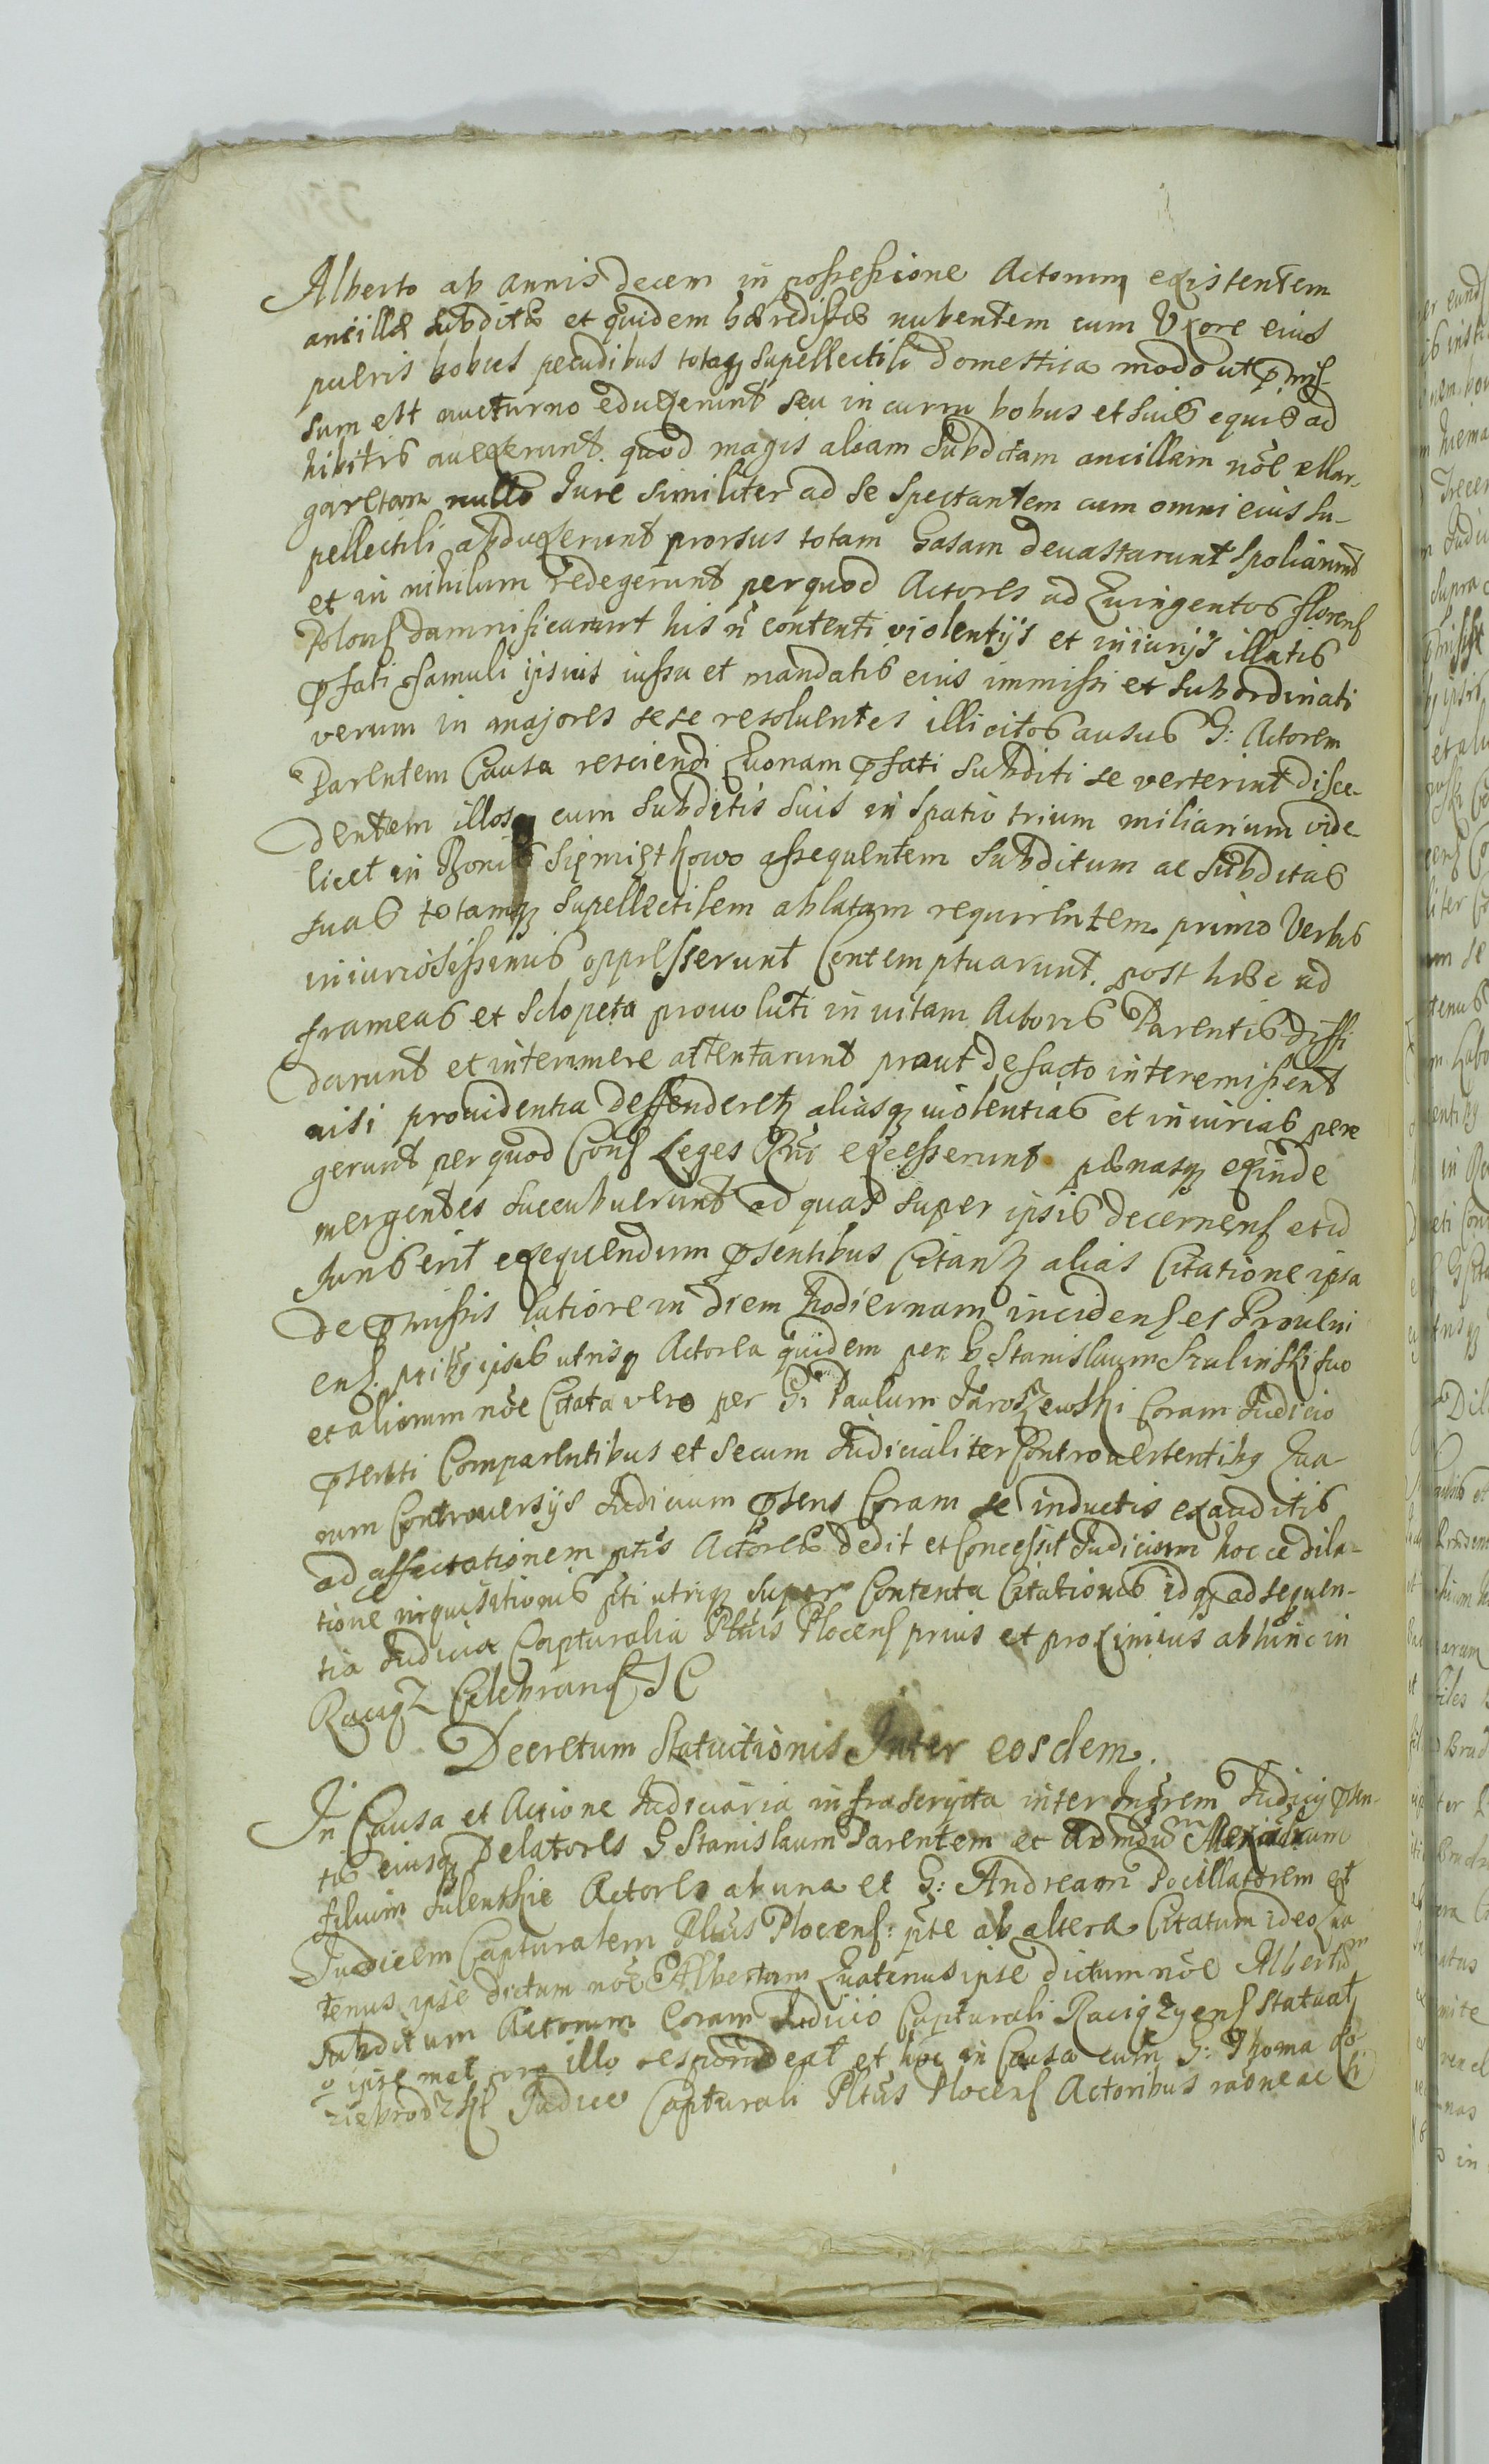 Alberto ab annis decem in possessione Actorum existentem
ancillæ subditæ et quidem hæredissæ nubentem cum Uxore eius
pueris bobus pecudibus totaq supellectili domestica modo ut pmis-
sum est nocturno eduxerunt seu in curru bobus et suis equis ad
hibitis auexerunt. quod magis aliam subditam ancillam nõe Mar-
garetam nullo Jure similiter ad se spectantem cum omni eius su-
pellectili abduxerunt prorsus totam Casam deuastarunt spoliarunt
et in nihilum redegerunt perquod Actores ad Quingentos florens
Polons damnificarunt his ñ contenti violentijs et iniurijs illatis
pfati famuli ipsius iussu et mandatis eius immissi et subordinati
verum in majores sese resoluentes illicitos ausus G: Actorem
Parentem Causa resciendi Quonam pfati subditi se verterint disce-
dentem illosq cum subditis suis in spatio trium miliarium vide
licet in Bonis assequentem subditum ac subditas
suas totamq supellectilem ablatam requirentem primo Verbis
iniuriosissimis oppresserunt Contemptuarunt. post hæc ad
frameas et sclopeta prouoluti in uitam Actoris Parentis diffi
darunt et interimere attentarunt praut de facto interemissent
nisi prouidentia deffenderet aliasq uiolentias et iniurias pere
gerunt per quod Cons Leges Rni excesserunt pænasq exinde
mergentes succubuerunt ad quas super ipsis decernens et id
Iuns erit exequendum psentibus Citant alias Citatione ipsa
de pmissis latiore in diem hodiernam incidens et Proueni
ens. ptibq ipsis utrisq Actorea quidem per G Stanislaum Szulinski suo
et aliorum nõe Citata vero per G: Paulum Jaroszewski Coram Judicio
psenti Comparentibus et secum Judicialiter Controuertentibq Qua
rum Controuersijs Judicium psens Coram se inductis exauditis
ad affectationem ptis Actoreæ dedit et Concessit Judicium hocce dila-
tione inquisitionis pti utriq super Contenta Citationis idq ad sequen-
tia Judicia Capturalia Pltus Plocens prius et proximius abhinc in
Raciąz Celebrans J C
Decretum Statuitionis Inter eosdem.
In Causa et Actione Judiciaria infrascripta inter Ingrem Judicij psen-
tis eiusq Delatores G Stanislaum Parentem et Admdum
filium Sulenskie Actores ab una et G: Andream Pocillatorem et
Judicem Capturalem Pltus Plocens: pte ab altera Citatum ideo Qua
tenus ipse dictum nõe Albertum Quatenus ipse dictum nõe Albertum
subditum Actorum Coram Judicio Capturali Raciązyens statuat
o ipse met pro illo respondeat et hoc in Causa cum G: Thoma Do
Judice Capturali Pltus Plocens Actoribus raõne ac